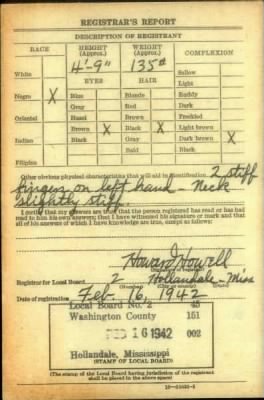 REGISTRAR'S REPORT
DESCRIPTION OF REGISTRANT
RACE
HEIGHT (Approx.)
WEIGHT (Approx.)
COMPLEXION
4'-9"
135#
White
Sallow
EYES
HAIR
Light
Negro X
Blue
Blonde
Ruddy
Gray
Red
Dark
Oriental
Hazel
Brown
Freckled
Brown X
Black X
Light brown
Indian
Black
Gray
Dark brown X
Bald
Black
Filipino
Other obvious physical characteristics that will aid in identification 2 stiff
fingers on left hand - Neck
slightly stiff.
I certify that my answers are true; that the person registered has read or has had
read to him his own answers; that I have witnessed his signature or mark and that
all of his answers of which I have knowledge are true, except as follows:
Howard Howell
(Signature of registrar)
Registrar for Local Board 2 Hollandale - Miss
Date of registration Feb. 16, 1942
Local Board No. 2 45
Washington County 151
FEB 16 1942 002
Hollandale, Mississippi
(STAMP OF LOCAL BOARD)
(The stamp of the Local Board having jurisdiction of the registrant
shall be placed in the above space)